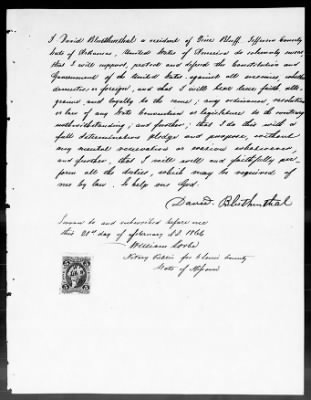 I David Bluthenthal a resident of Pine Bluff, Jefferson County
State of Arkansas, United States of America do solemnly swear
that I will support, protect and defend the Constitution and
Government of the United States, against all enemies, whether
domestic or foreign, and that I will bear true faith alle-
giance and loyalty to the same; any ordinance, resolution
or law of any State Convention or legislature to the contrary
notwithstanding; and further; that I do this with a
full determination pledge and purpose, without
any mental reservation or evasion whatsoever,
and further, that I will well and faithfully per
form all the duties, which may be required of
me by law. So help me God.
David Bluthenthal
Sworn to and subscribed before me
this 21st day of february A.D. 1866
William
Notary Public for St Louis County
State of Missouri